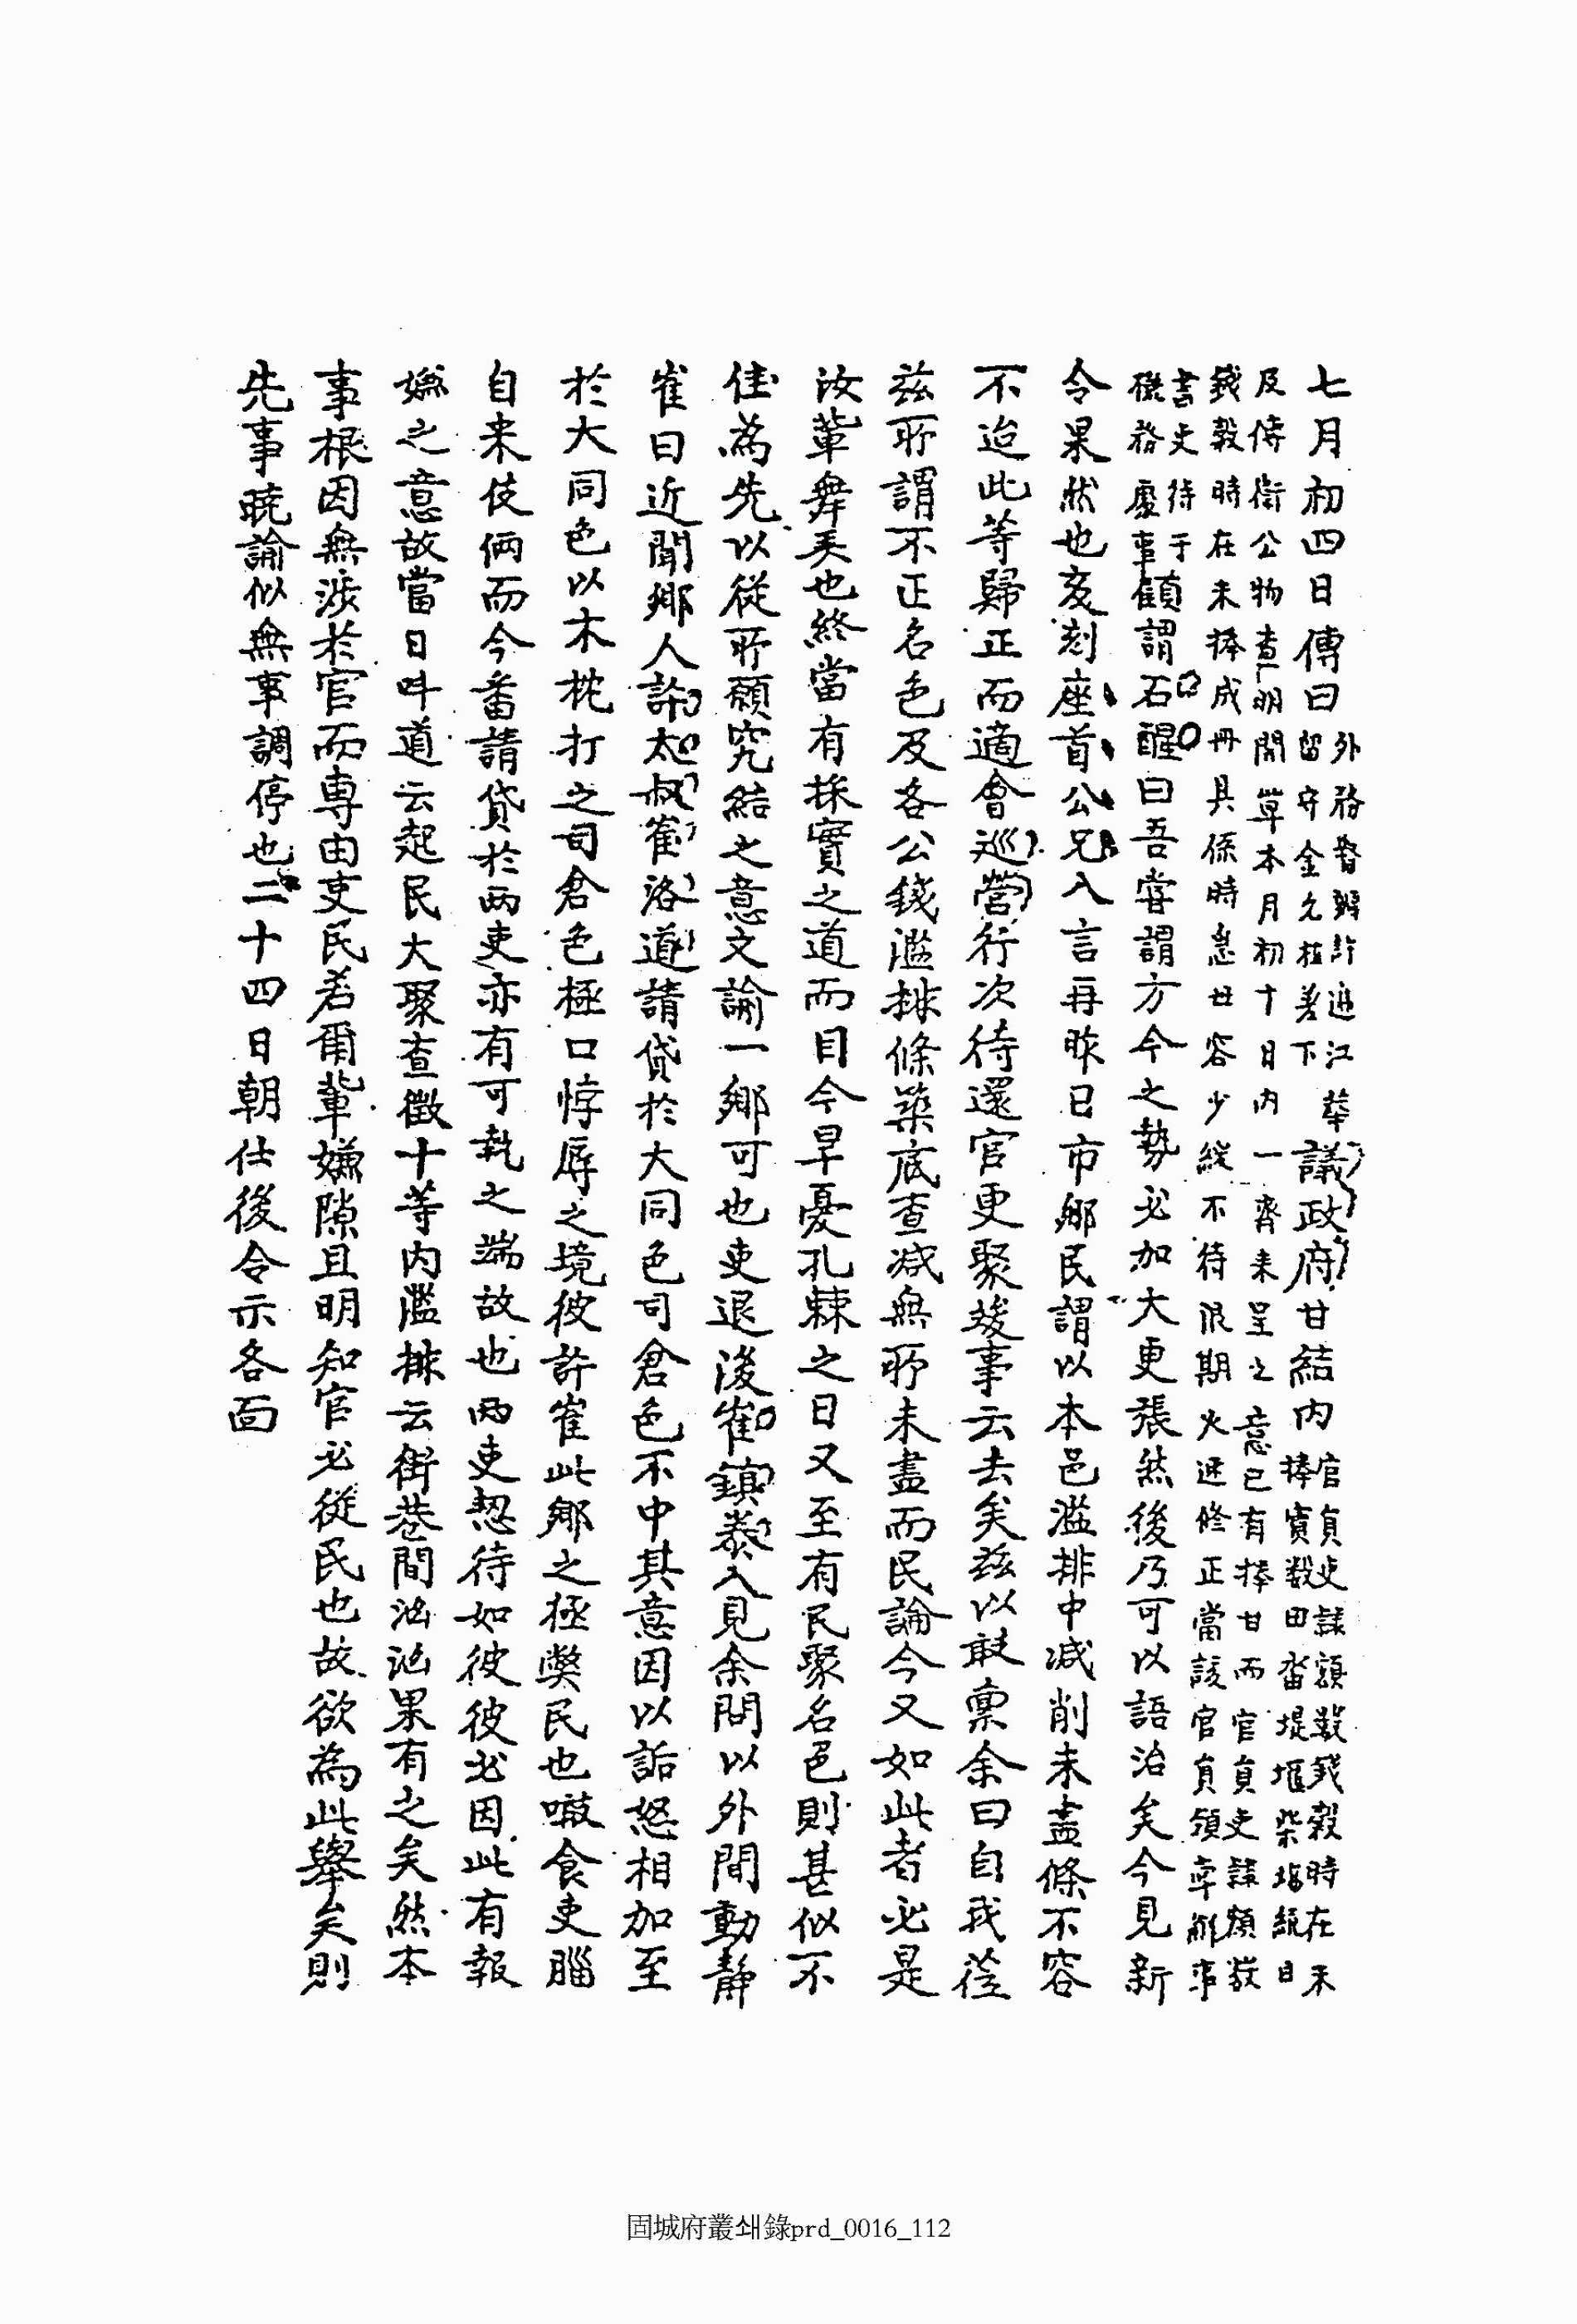 七月初四日傳曰外務督辦許進江華留守金允植差下議政府甘結內官員吏隸額數錢穀時在未捧實數田畓堤堰柴場結日
及傳銜公物查明開單本月初十日內一齊來呈之意已有捧甘而官員吏隸額數
錢穀時在未捧成冊具係時急毋容少緩不待限期火速修正當該官員領率解事
書吏待于機務處事顧謂石醒曰吾嘗謂方今之勢必加大更張然後乃可以語治矣今見新
令果然也亥刻座首公兄入言再昨巳市鄉民謂以本邑濫排中減削未盡條不容
不迨此等歸正而適會巡營行次待還官更聚竣事云去矣茲以敢稟余曰自我莅
茲所謂不正名色及各公錢濫排條築底查減無所未盡而民論今又如此者必是
汝輩舞弄也終當有採實之道而目今旱憂孔棘之日又至有民聚名色則甚似不
佳為先以從所願究結之意文諭一鄉可也吏退後崔鎮泰入見余問以外間動靜
崔曰近聞鄉人許太叔崔洛道請貸於大同色司倉色不中其意因以詬怒相加至
於大同色以木枕打之司倉色極口悖辱之境彼許崔此鄉之極獘民也噉食吏腦
自來伎倆而今番請貸於兩吏亦有可執之端故也兩吏恝待如彼彼必因此有報
嫌之意故當日叫道云起民大聚查徵十等內濫排云街巷間汹汹果有之矣然本
事根因無涉於官而專由吏民若爾輩嫌隙且明知官必從民也故欲為此舉矣則
先事曉諭似無事調停也二十四日朝仕後令示各面
固城府叢쇄錄prd_0016_112